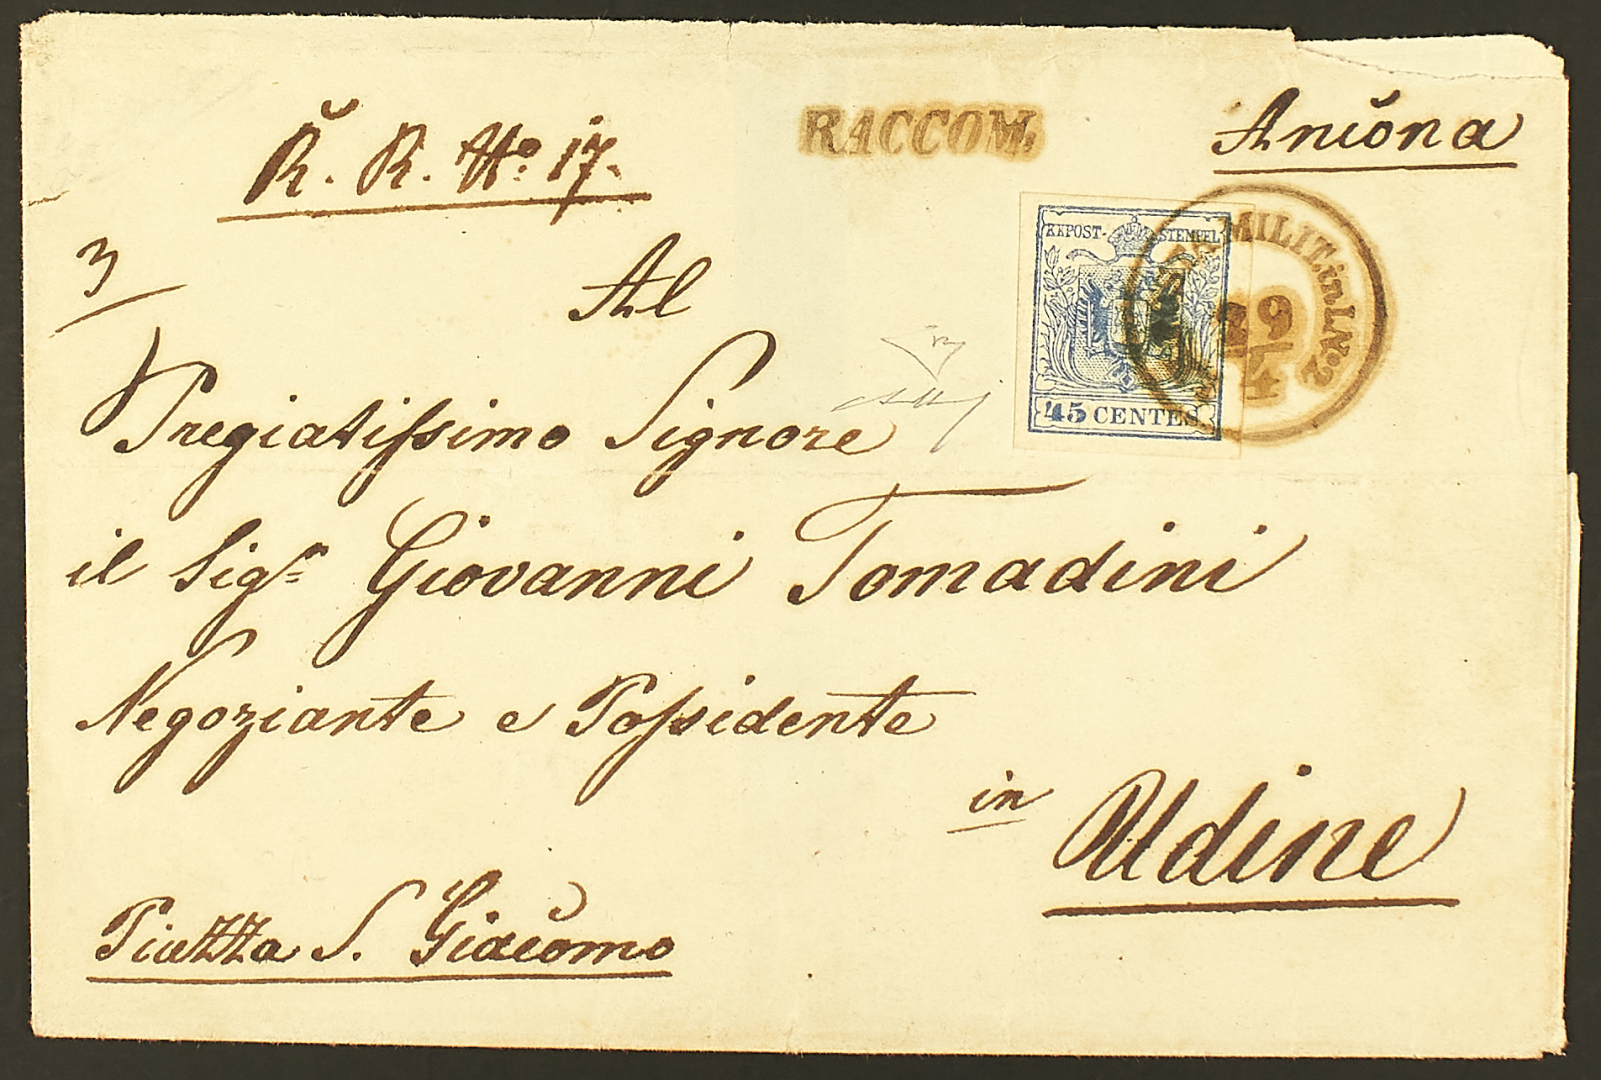 Ř. R. No. 17.
RACCOM.
Ancona
3
KKPOST-STEMPEL
MILIT. in I. No. 2
29/4
45 CENTES.
Al
Pregiatissimo Signore
il Sigr Giovanni Tomadini
Negoziante e Possidente
in Udine
Piazza S. Giacomo